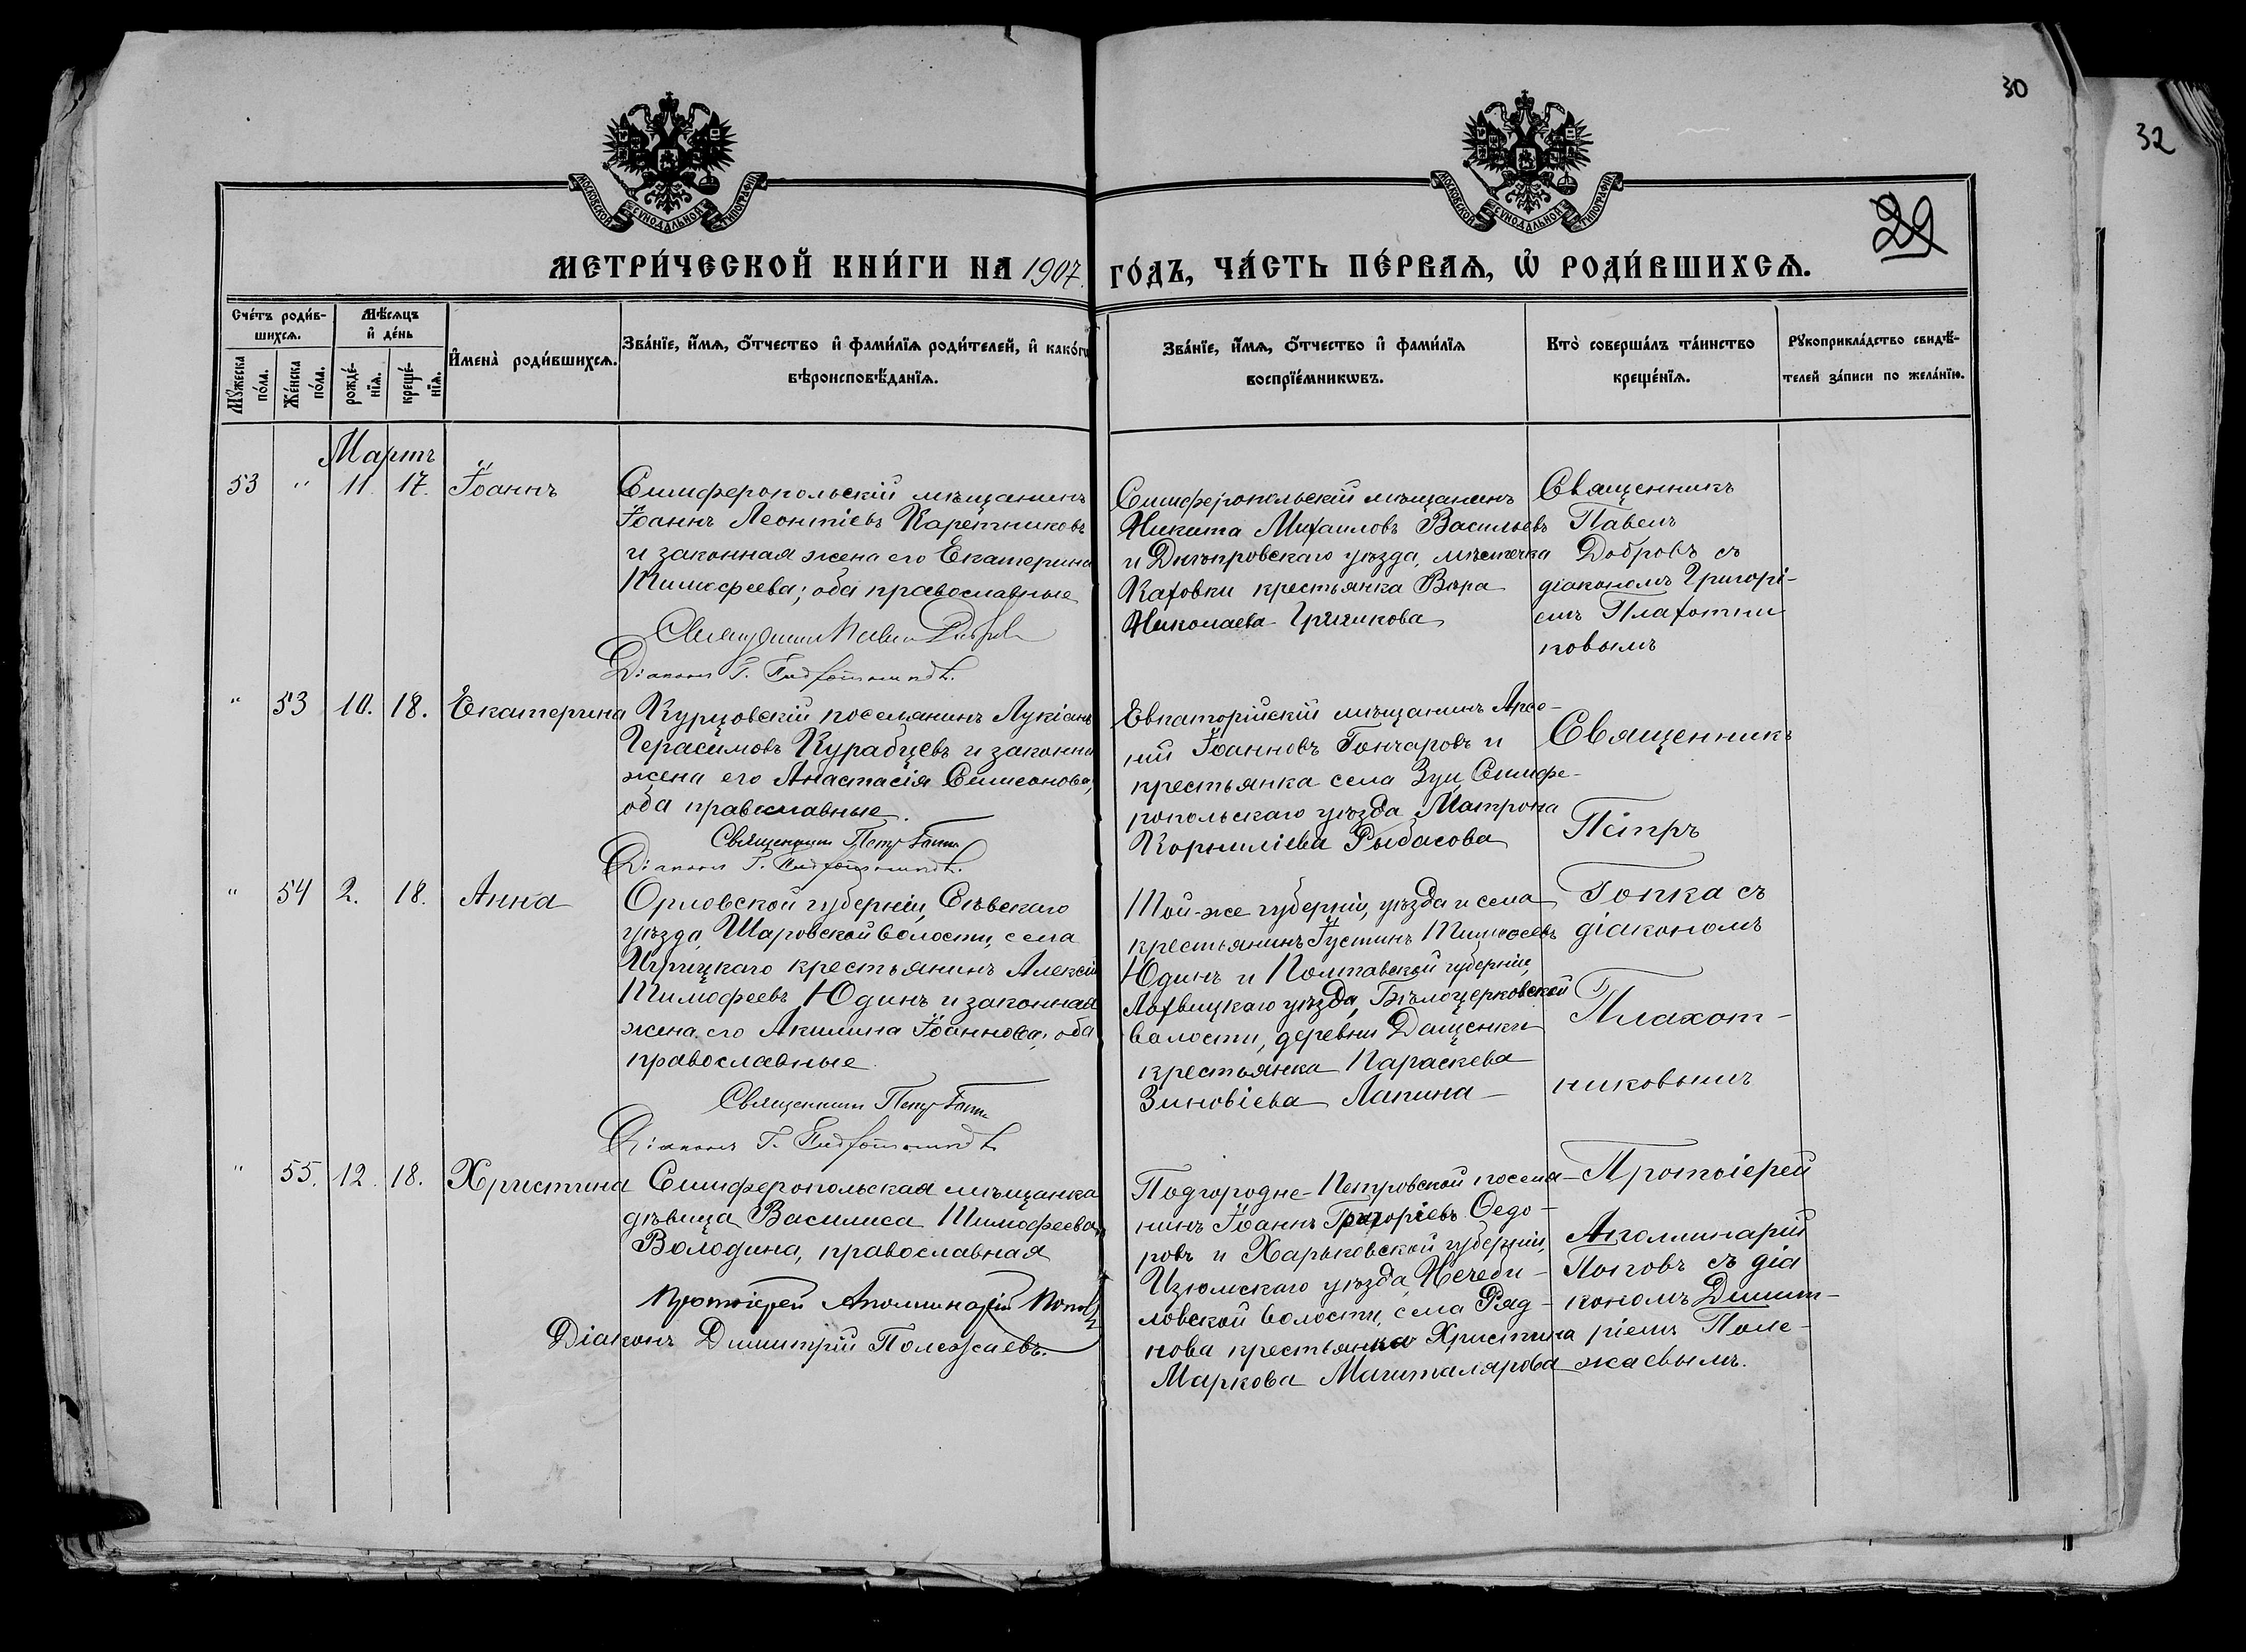 30
32
29
МОСКОВСКОЙ СѴНОДАЛЬНОЙ ТИПОГРАФІИ
МОСКОВСКОЙ СѴНОДАЛЬНОЙ ТИПОГРАФІИ
МЕТРИ́ЧЕСКОЙ КНИ́ГИ НА 1907. ГО́ДЪ, ЧА́СТЬ ПЕ́РВАѦ, Ѡ҆ РОДИ́ВШИХСѦ.
Сче́тъ роди́в-
шихсѧ.
Мꙋ́жеска по́ла.
Же́нска по́ла.
Мѣ́сѧцъ
и҆ де́нь
рожде́-
нїѧ.
креще́-
нїѧ.
И҆мена̀ роди́вшихсѧ.
Зва́нїе, и҆́мѧ, ѻ҆́тчество и҆ фами́лїѧ роди́телей, и҆ како́гѡ
вѣроисповѣ́данїѧ.
Зва́нїе, и҆́мѧ, ѻ҆́тчество и҆ фами́лїѧ
воспрїе́мникѡвъ.
Кто̀ соверша́лъ та́инство
креще́нїѧ.
Рꙋкоприкла́дство свидѣ́-
телей за́писи по жела́нїю.
Мартъ
53 " 11. 17. Іоаннъ
Симферопольскій мѣщанинъ
Іоаннъ Леонтіевъ Каретниковъ
и законная жена его Екатерина
Тимофеева; оба православные
Священникъ Павел Добров
Діаконъ Г. Плахотниковъ.
Симферопольскій мѣщанинъ
Никита Михаиловъ Васильевъ
и Днѣпровскаго уѣзда, мѣстечка
Каховки крестьянка Вѣра
Николаева
Священникъ
Павелъ
Добровъ съ
діакономъ Григорі-
емъ Плахотни
ковымъ
" 53 10. 18. Екатерина
Курцовскій поселянинъ Лукіанъ
Герасимовъ Курабцевъ и законная
жена его Анастасія Симеонова,
оба православные.
Священникъ Петр Гопка
Діаконъ Г. Плахотниковъ.
Евпаторійскій мѣщанинъ Арсе-
ній Іоанновъ Гончаровъ и
крестьянка села Зуи, Симфе-
ропольскаго уѣзда Матрона
Корниліева Рыбасова
Священникъ
Петръ
Гопка съ
діакономъ
Плахот-
никовымъ
" 54 2. 18. Анна
Орловской губерніи, Сѣвскаго
уѣзда, Шаровской волости, села
крестьянинъ Алексій
Тимофеевъ Юдинъ и законная
жена его Акилина Іоаннова, оба
православные
Священникъ Петр Гопка
Діаконъ Г. Плахотниковъ
Той-же губерніи, уѣзда и села
крестьянинъ Іустинъ Тимофеевъ
Юдинъ и Полтавской губерніи,
Лохвицкаго уѣзда, Бѣлоцерковской
волости, деревни Даценки
крестьянка Параскева
Зиновіева Лапина
" 55. 12. 18. Христина
Симферопольская мѣщанка
дѣвица Василиса Тимофеева
Володина, православная
Протоіерей Аполлинарій Поповъ
Діаконъ Димитрій Полежаевъ.
Подгородне-Петровской поселя-
нинъ Іоаннъ Григоріевъ Ѳедо-
ровъ и Харьковской губерніи,
Изюмскаго уѣзда,
ловской волости, села Ряд-
кова крестьянка Христина
Маркова
Протоіерей
Аполлинарій
Поповъ съ діа
кономъ Димит-
ріемъ Поле-
жаевымъ.